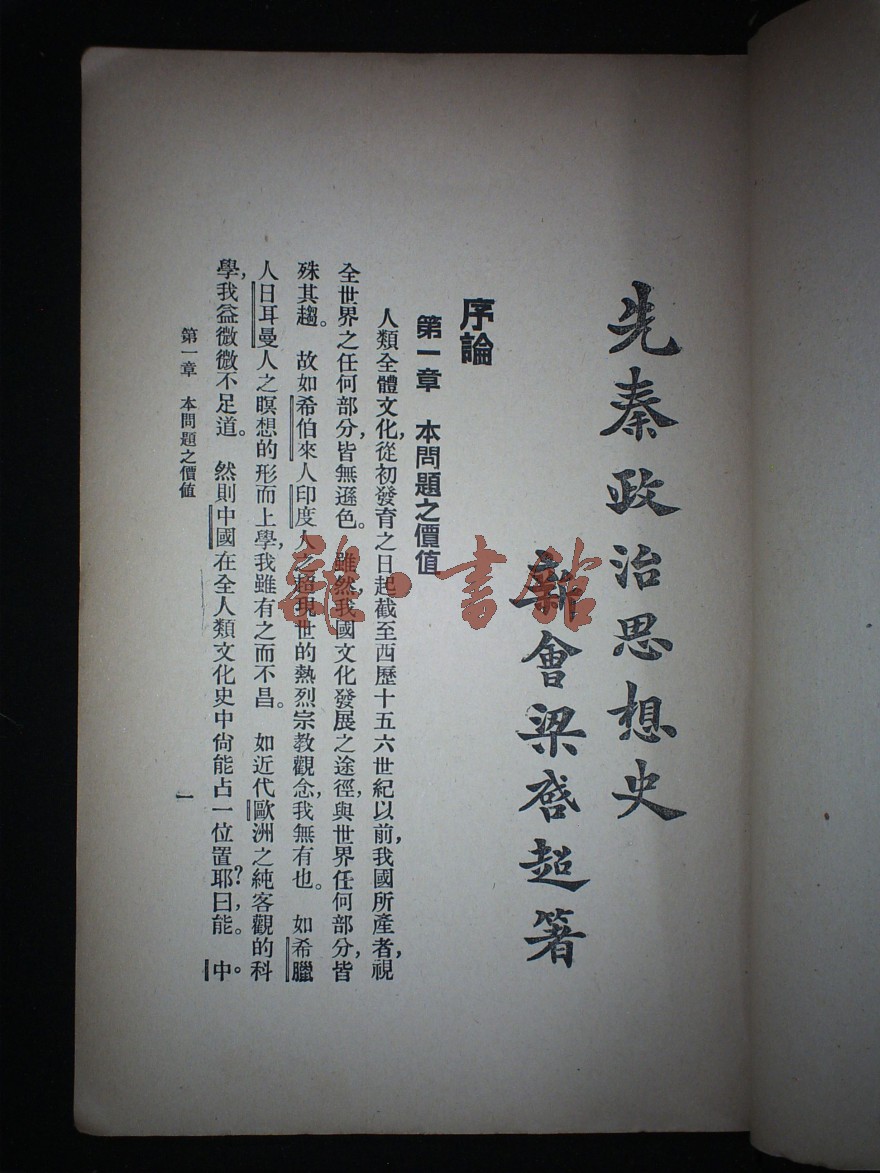 先秦政治思想史
新會梁啓超著
序論
第一章 本問題之價值
人類全體文化，從初發育之日起截至西歷十五六世紀以前，我國所產者，視
全世界之任何部分，皆無遜色。雖然，我國文化發展之途徑，與世界任何部分，皆
殊其趨。故如希伯來人印度人之超現世的熱烈宗教觀念，我無有也。如希臘
人日耳曼人之瞑想的形而上學，我雖有之而不昌。如近代歐洲之純客觀的科
學，我益微微不足道。然則中國在全人類文化史中尙能占一位置耶？曰，能。中
第一章 本問題之價值
一
龍·書館